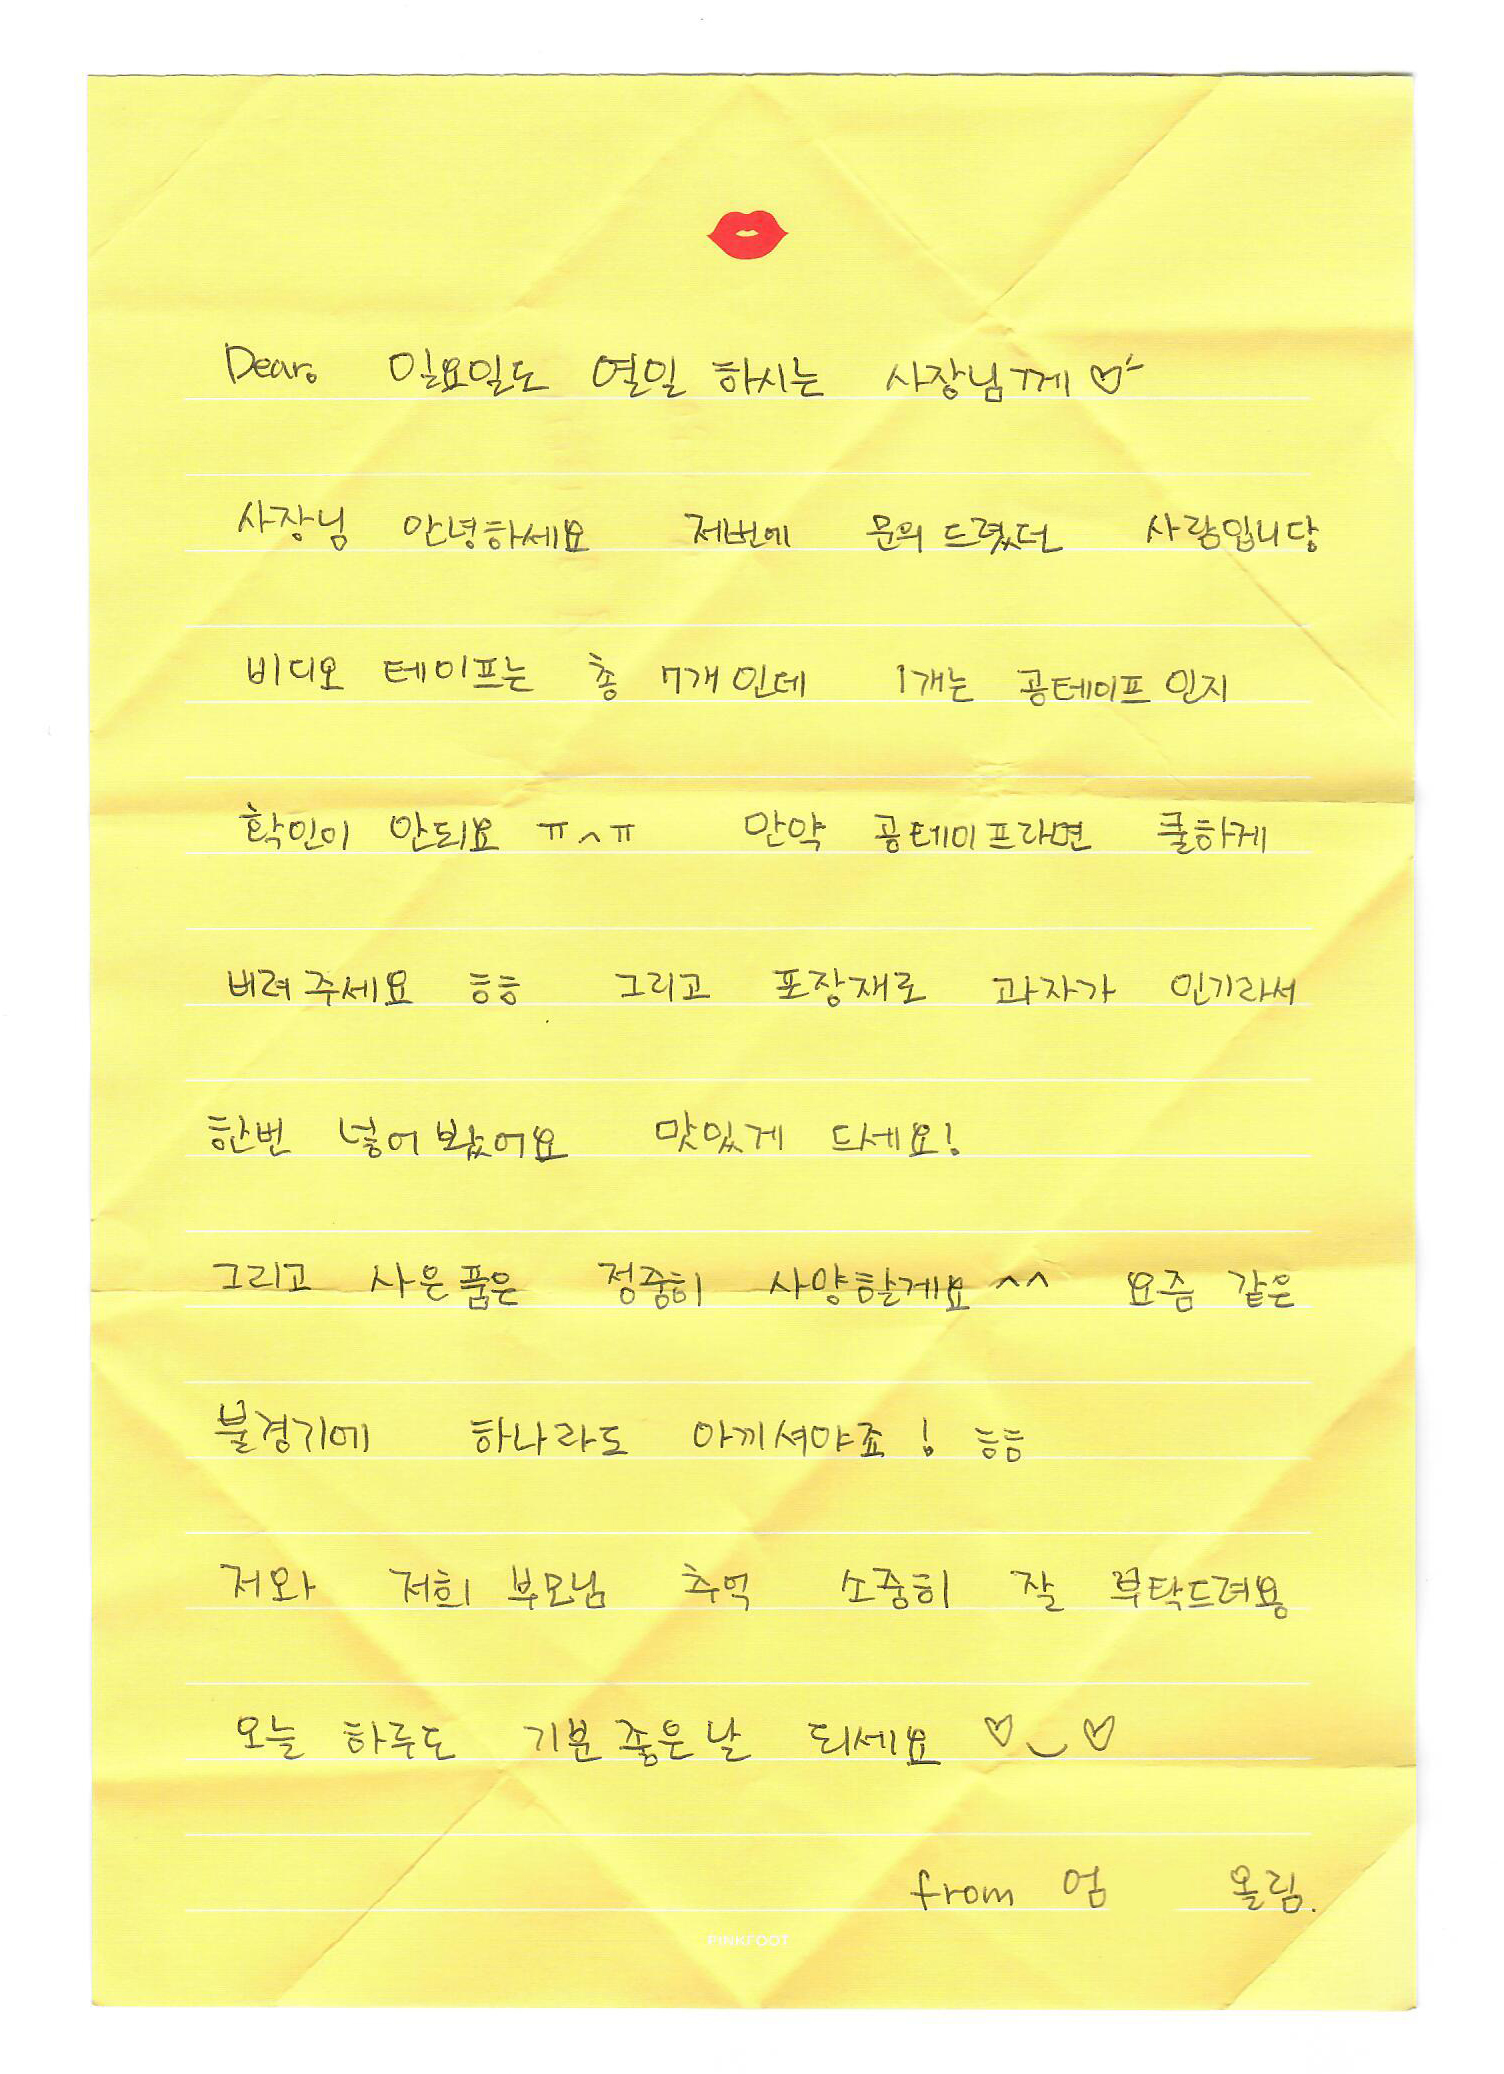 Dear. 일요일도 열일 하시는 사장님께♡
사장님 안녕하세요 저번에 문의 드렸던 사람입니당
비디오 테이프는 총 7개인데 1개는 공테이프 인지
확인이 안되요 ㅠ^ㅠ 만약 공테이프라면 쿨하게
버려 주세요 흐흐 그리고 포장재로 과자가 인기라서
한번 넣어 봤어요 맛있게 드세요!
그리고 사은품은 정중히 사양할게요^^ 요즘 같은
불경기에 하나라도 아끼셔야죠! 흐흐
저와 저희 부모님 추억 소중히 잘 부탁드려용
오늘 하루도 기분 좋은 날 되세요 ♡‿♡
from 엄 올림.
PINKFOOT